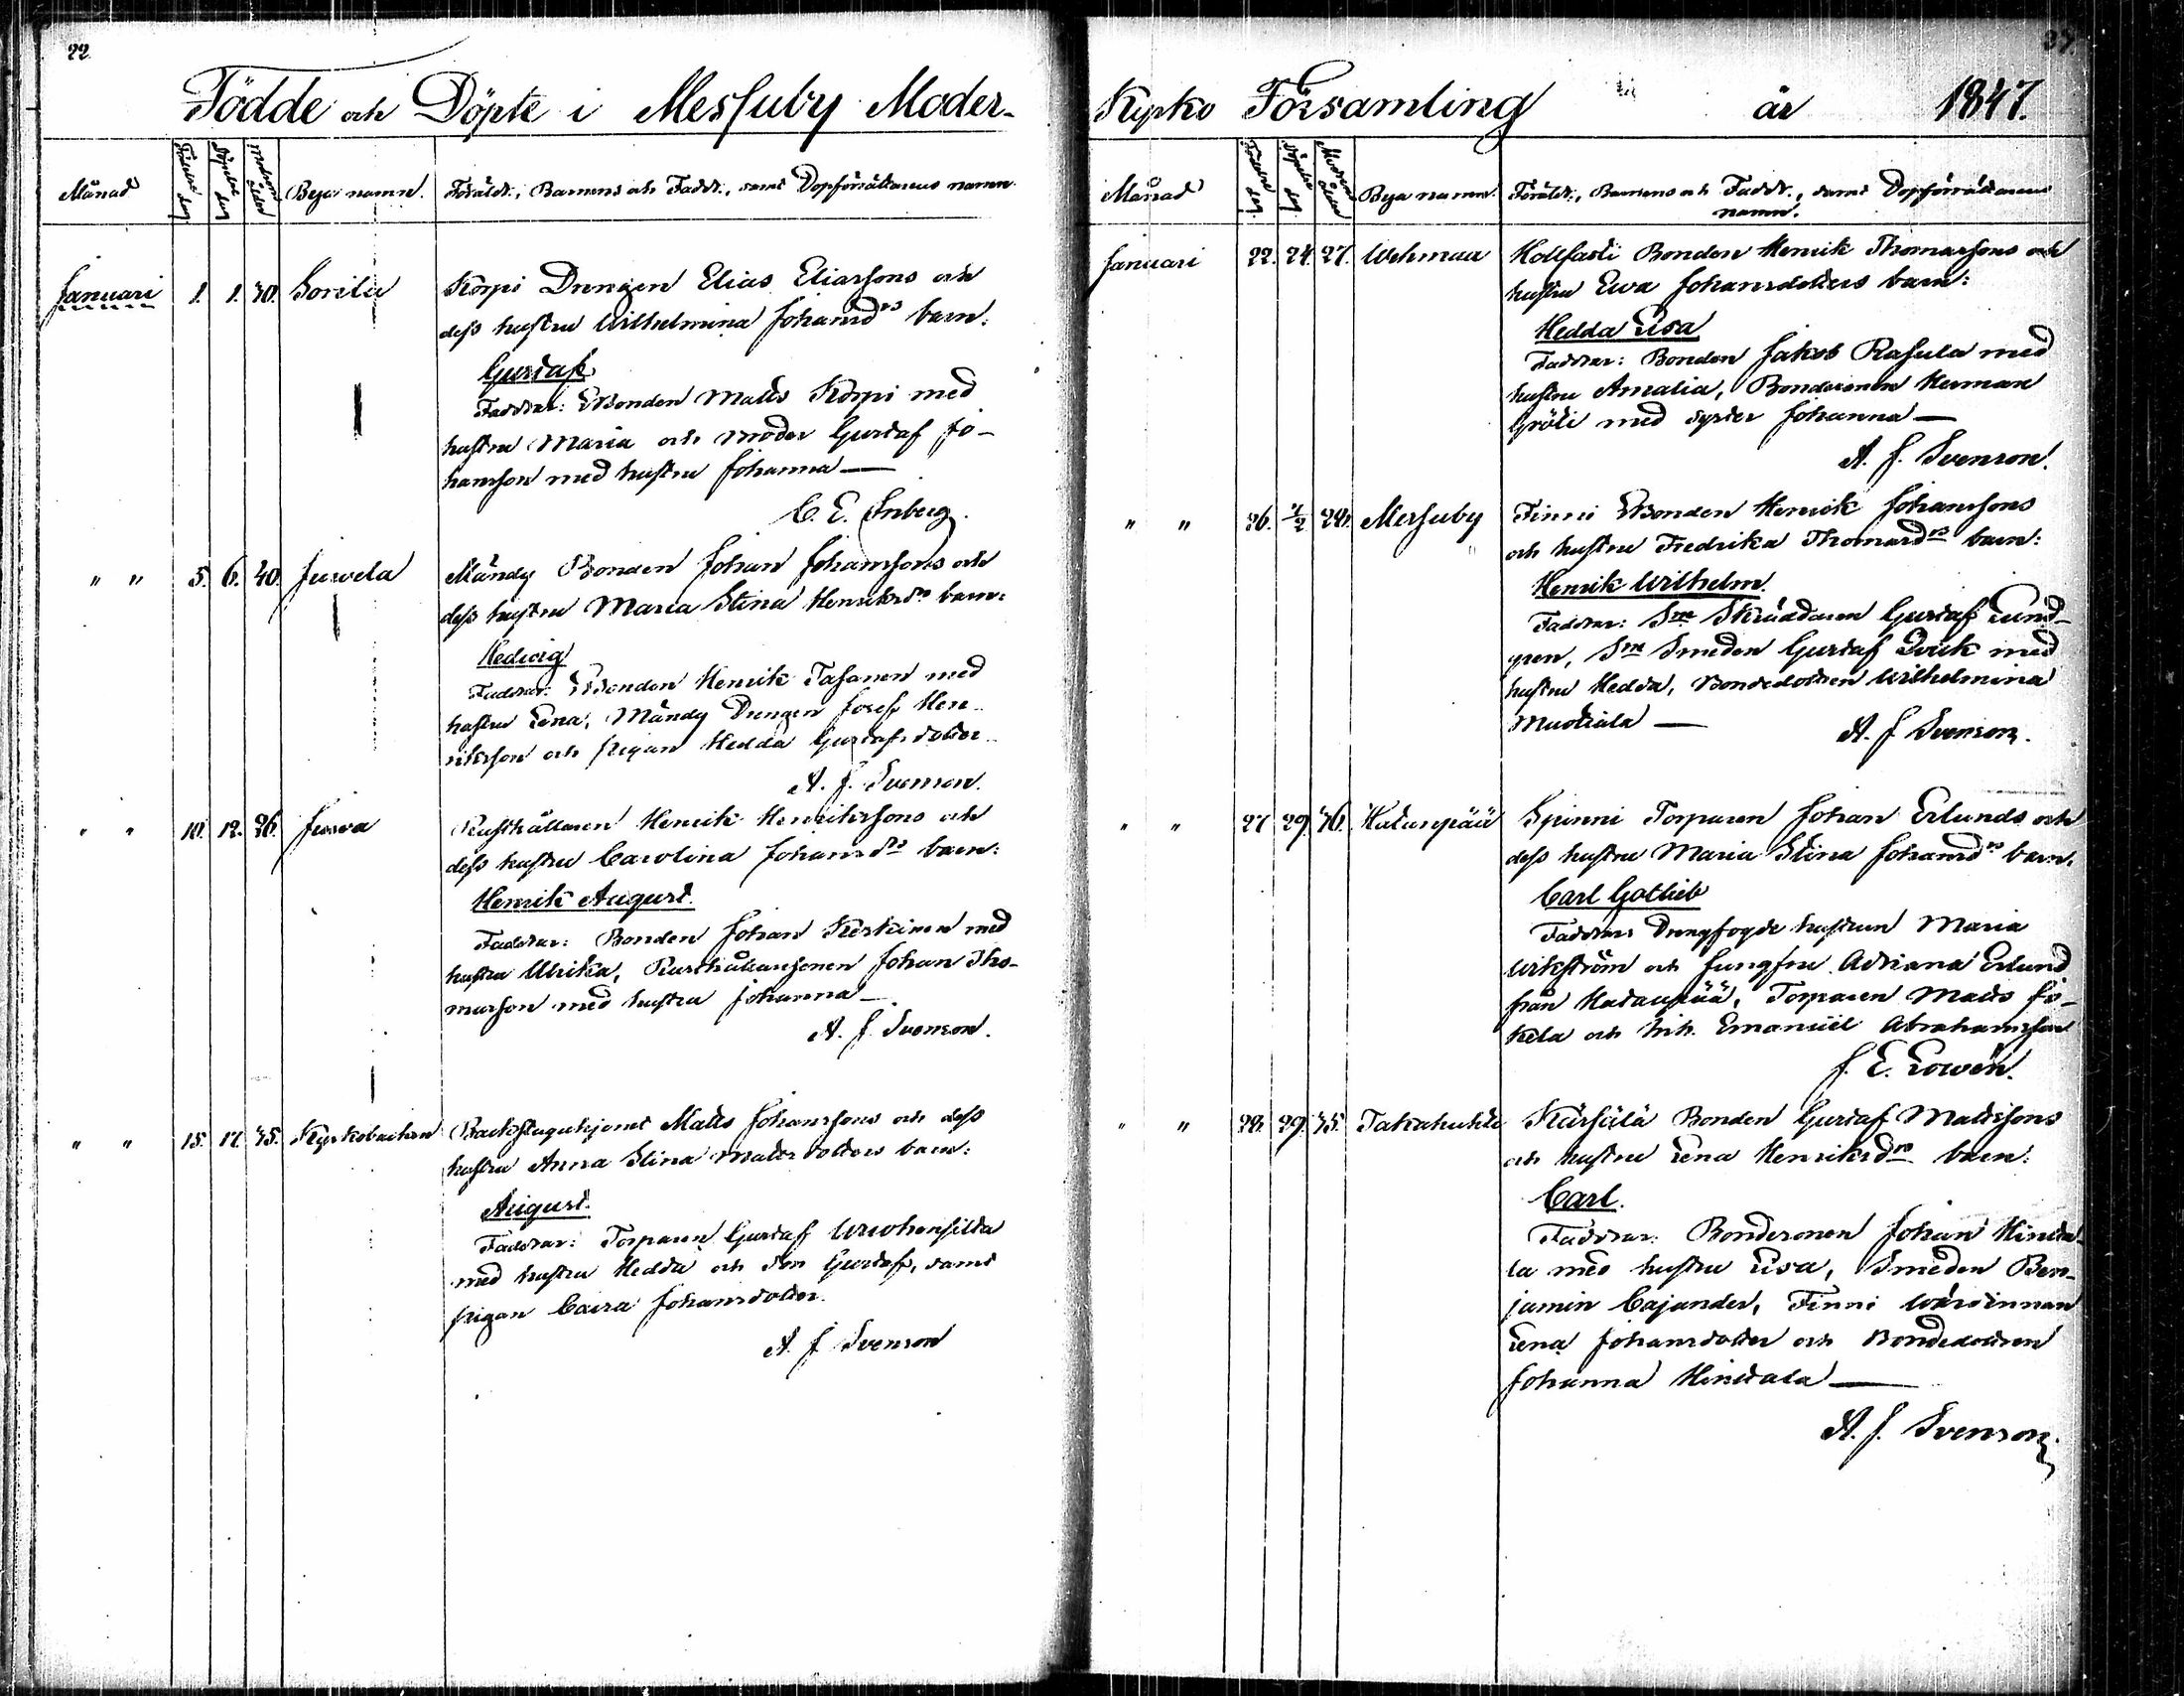 22.
Födde och Döpte i Messuby Moder-
Månad Födelse dag Döpelse dag Modrens ålder Bya namn. Föräldr., Barnens och Faddr., samt Dopförrättarens namn.
Januari 1. 1. 30. Sorila Korpi Drengen Elias Eliassons och
dess hustru Wilhelmina Johansdrs barn:
Gustaf.
Faddrar: Bonden Matts Korpi med
hustru Maria och Gustaf Jo-
hansson med hustru Johanna —
C. E. Inberg.
" " 5. 6. 40. Juvela Mändy Bonden Johan Johanssons och
dess hustru Maria Stina Henriksdrs barn:
Hedwig
Faddrar: Bonden Henrik Tasanen med
hustru Lena, Mändy Drengen Josef Hen-
riksson och pigan Hedda Gustafsdotter
A. J. Svenson.
" " 10. 12. 26. Juvela Rusthållaren Henrik Henrikssons och
dess hustru Carolina Johansdrs barn:
Henrik August.
Faddrar: Bonden Johan Kerkinen med
hustru Ulrika, Rusthållaresonen Johan Tho-
masson med hustru Johanna —
A. J. Svenson.
" " 15. 17. 45. Kyrkobacken Backstuguhjonet Matts Johanssons och dess
hustru Anna Stina Mattsdotters barn:
August.
Faddrar: Torparen Gustaf Wuohensilta
med hustru Hedda och Son Gustaf, samt
pigan Caisa Johansdotter.
A. J. Svenson
37.
Kyrko Församling år 1847.
Månad Födelse dag Döpelse dag Modrens ålder Bya namn. Föräldr., Barnens och Faddr., samt Dopförrättarens
namn.
Januari 22. 24. 27. Wehmaa Kollfasti Bonden Henrik Thomassons och
hustru Ewa Johansdotters barn:
Hedda Lisa
Faddrar: Bonden Jakob Rasula med
hustru Amalia, Bondesonen Herman
Gröti med syster Johanna —
A. J. Svenson.
" " 26. 2/2 24. Messuby Finni Bonden Henrik Johanssons
och hustru Fredrika Thomasdrs barn:
Henrik Wilhelm.
Faddrar: Sne Skräddaren Gustaf Lund-
gren, Sne Smeden Gustaf Qvick med
hustru Hedda, Bondedottren Wilhelmina
Muotiala —
A. J. Svenson.
" " 27 29. 36. Hatanpää Spinni Torparen Johan Erlunds och
dess hustru Maria Stina Johansdrs barn.
Carl Gotlieb
Faddrar: Drengfogde hustrun Maria
Wikström och Jungfru Adriana Erlund
från Hatanpää, Torparen Matts Jo-
kela och Inh. Emanuel Abrahamsson
J. E. Lowén.
" " 28. 29. 35. Takahuhti Kärsälä Bonden Gustaf Mattssons
och hustru Lena Henriksdrs barn:
Carl.
Faddrar: Bondesonen Johan Hinta-
la med hustru Lisa, Smeden Ben-
jamin Cajander, Finni Wärdinnan
Lena Johansdotter och Bondedottren
Johanna Hintala —
A. J. Svenson.